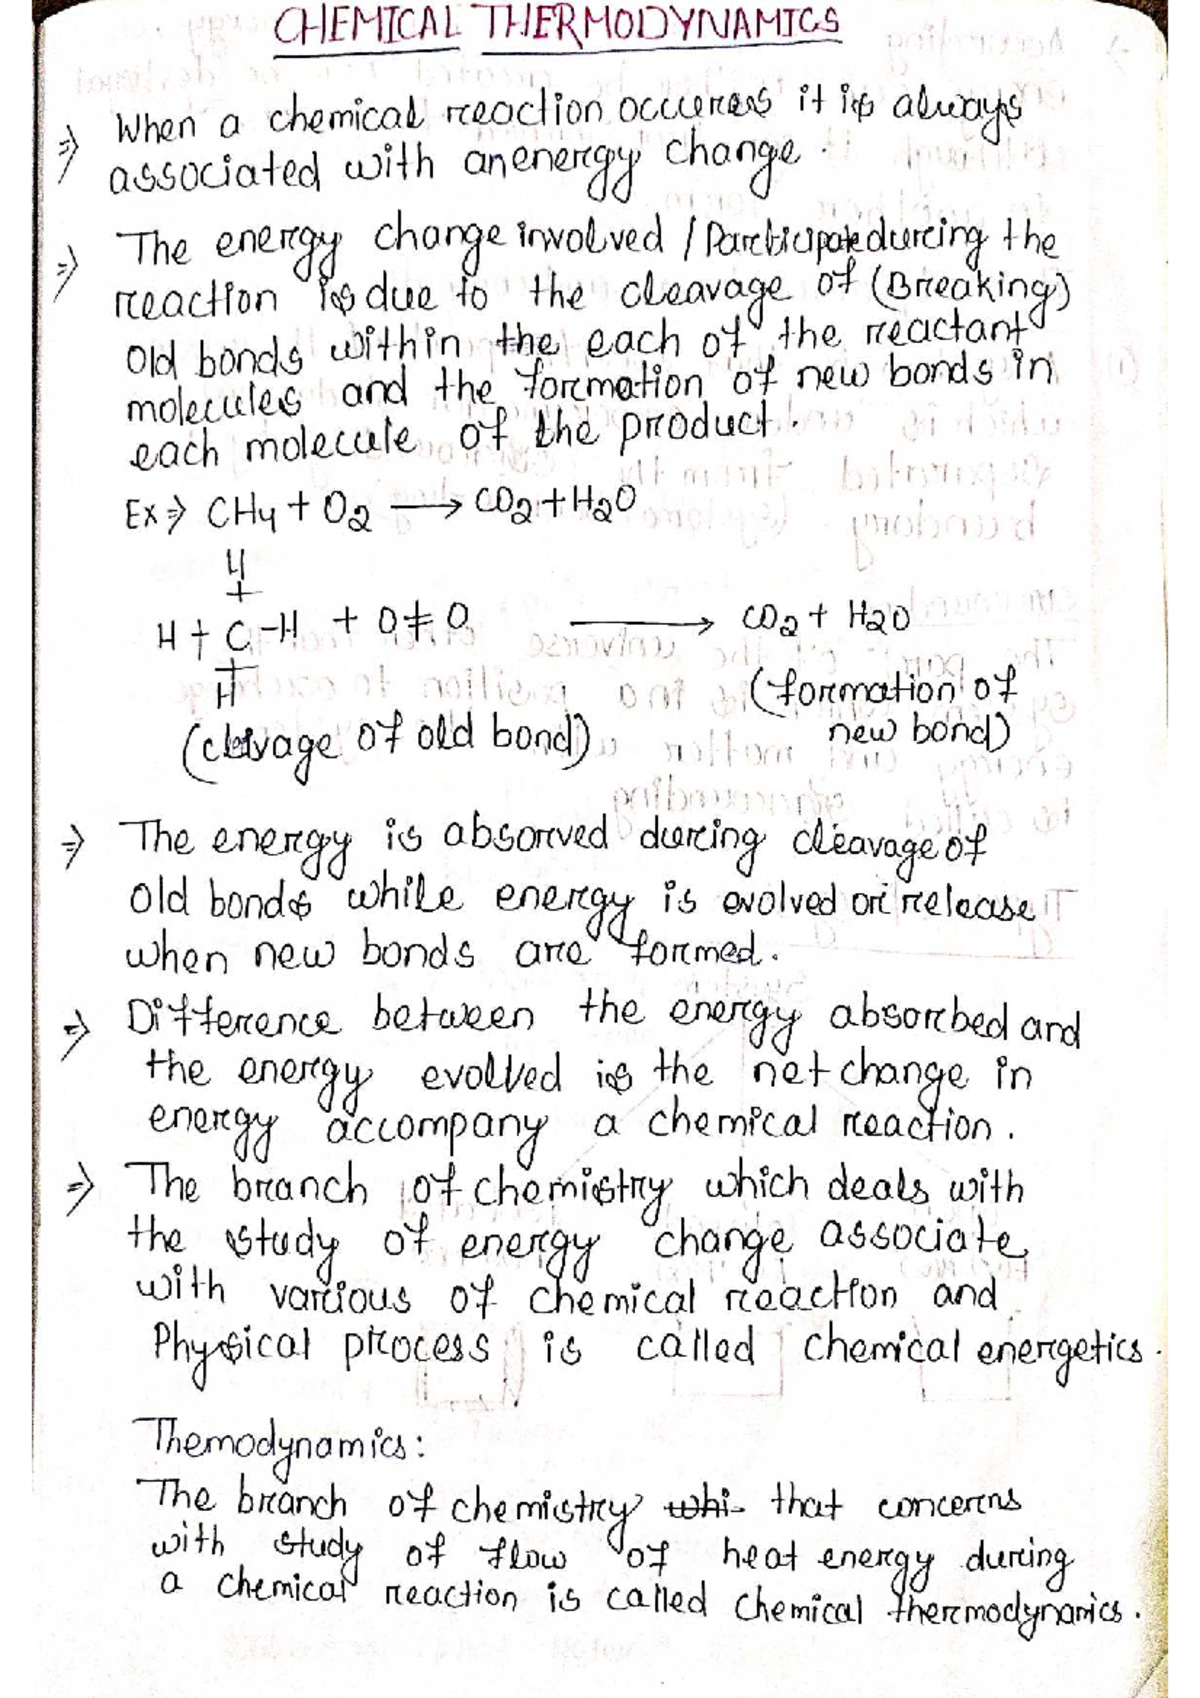 CHEMICAL THERMODYNAMICS
⇒ When a chemical reaction occurers it is always
associated with an energy change.
⇒ The energy change involved / Participate during the
reaction is due to the cleavage of (Breaking)
old bonds within the each of the reactant
molecules and the formation of new bonds in
each molecule of the product.
Ex ⇒ CH4 + O2 ⟶ CO2 + H2O
H
H + C - H + O ≠ O ⟶ CO2 + H2O
H (formation of
(clevage of old bond) new bond)
⇒ The energy is absorved during cleavage of
old bonds while energy is evolved or release
when new bonds are formed.
⇒ Difference between the energy absorbed and
the energy evolved is the net change in
energy accompany a chemical reaction.
⇒ The branch of chemistry which deals with
the study of energy change associate
with various of chemical reaction and
Physical process is called chemical energetics.
Themodynamics:
The branch of chemistry whi- that concerns
with study of flow of heat energy during
a chemical reaction is called chemical thermodynamics.